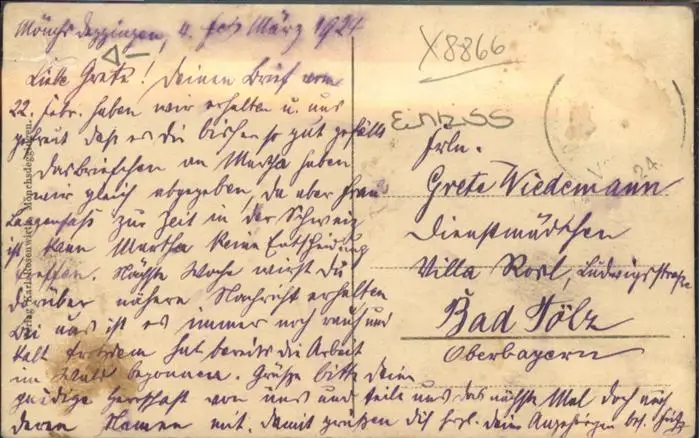 Mönchsdeggingen, 4. März 1924
Liebe Grete! Deinen Brief vom
22. Febr. haben wir erhalten u. uns
gefreut daß es dir bisher so gut gefällt
Das Briefchen an Martha haben
wir gleich abgegeben, da aber Frau
zur Zeit in der Schweiz
ist kann Martha keine Entscheidung
treffen. Nächste Woche wirst du
darüber nähere Nachricht erhalten
Bei uns ist es immer noch rauh und
kalt trotzdem hat bereits die Arbeit
im Wald begonnen. Grüße bitte deine
gnädige Herrschaft von uns und teile uns das nächste Mal doch auch
deren Namen mit. Damit grüßen dich herzl. deine Angehörigen
X8866
EINRISS
Frln.
Grete Wiedemann
Dienstmädchen
Villa Rosl, Ludwigsstraße
Bad Tölz
Oberbayern
24
Verlag Karl Rosenwirth, Mönchsdeggingen.